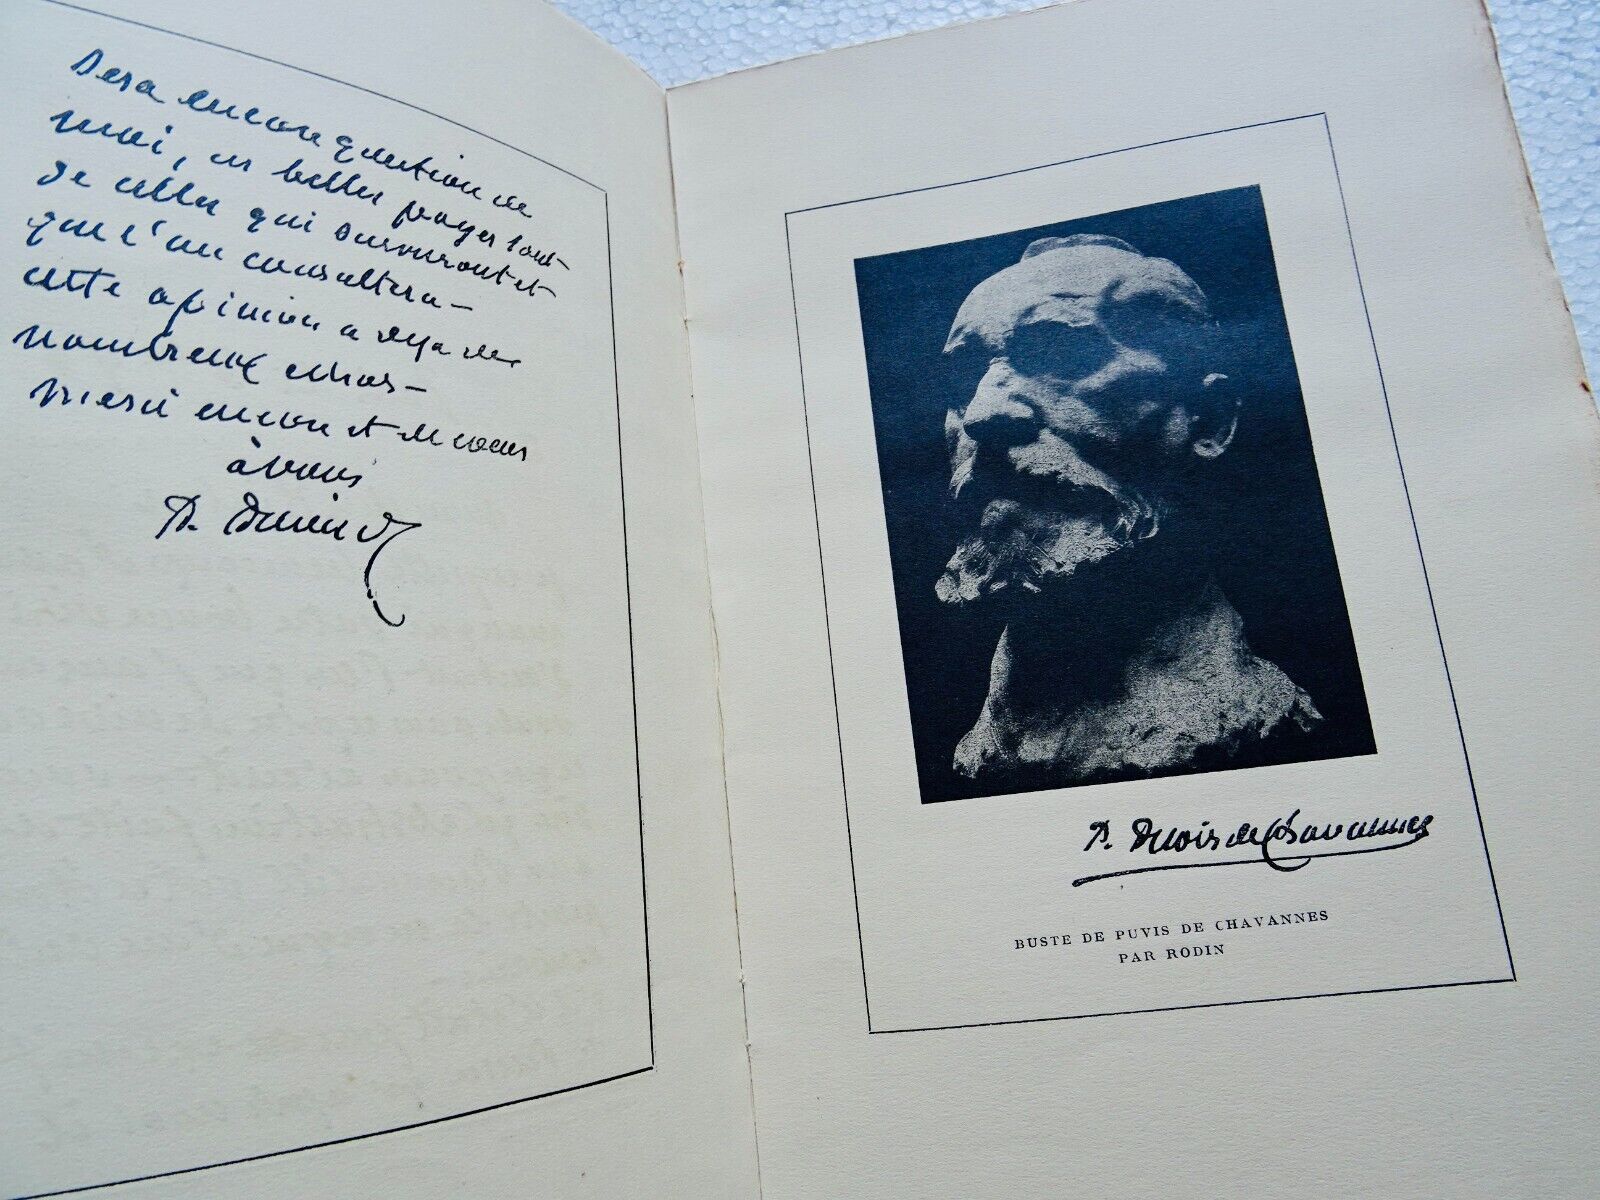 sera encore question de
moi, ces belles pages sont
de celles qui survivront et
que l'on consultera —
cette opinion a déjà de
nombreux échos —
merci encore et de cœur
à vous
P.
P. Puvis de Chavannes
BUSTE DE PUVIS DE CHAVANNES
PAR RODIN